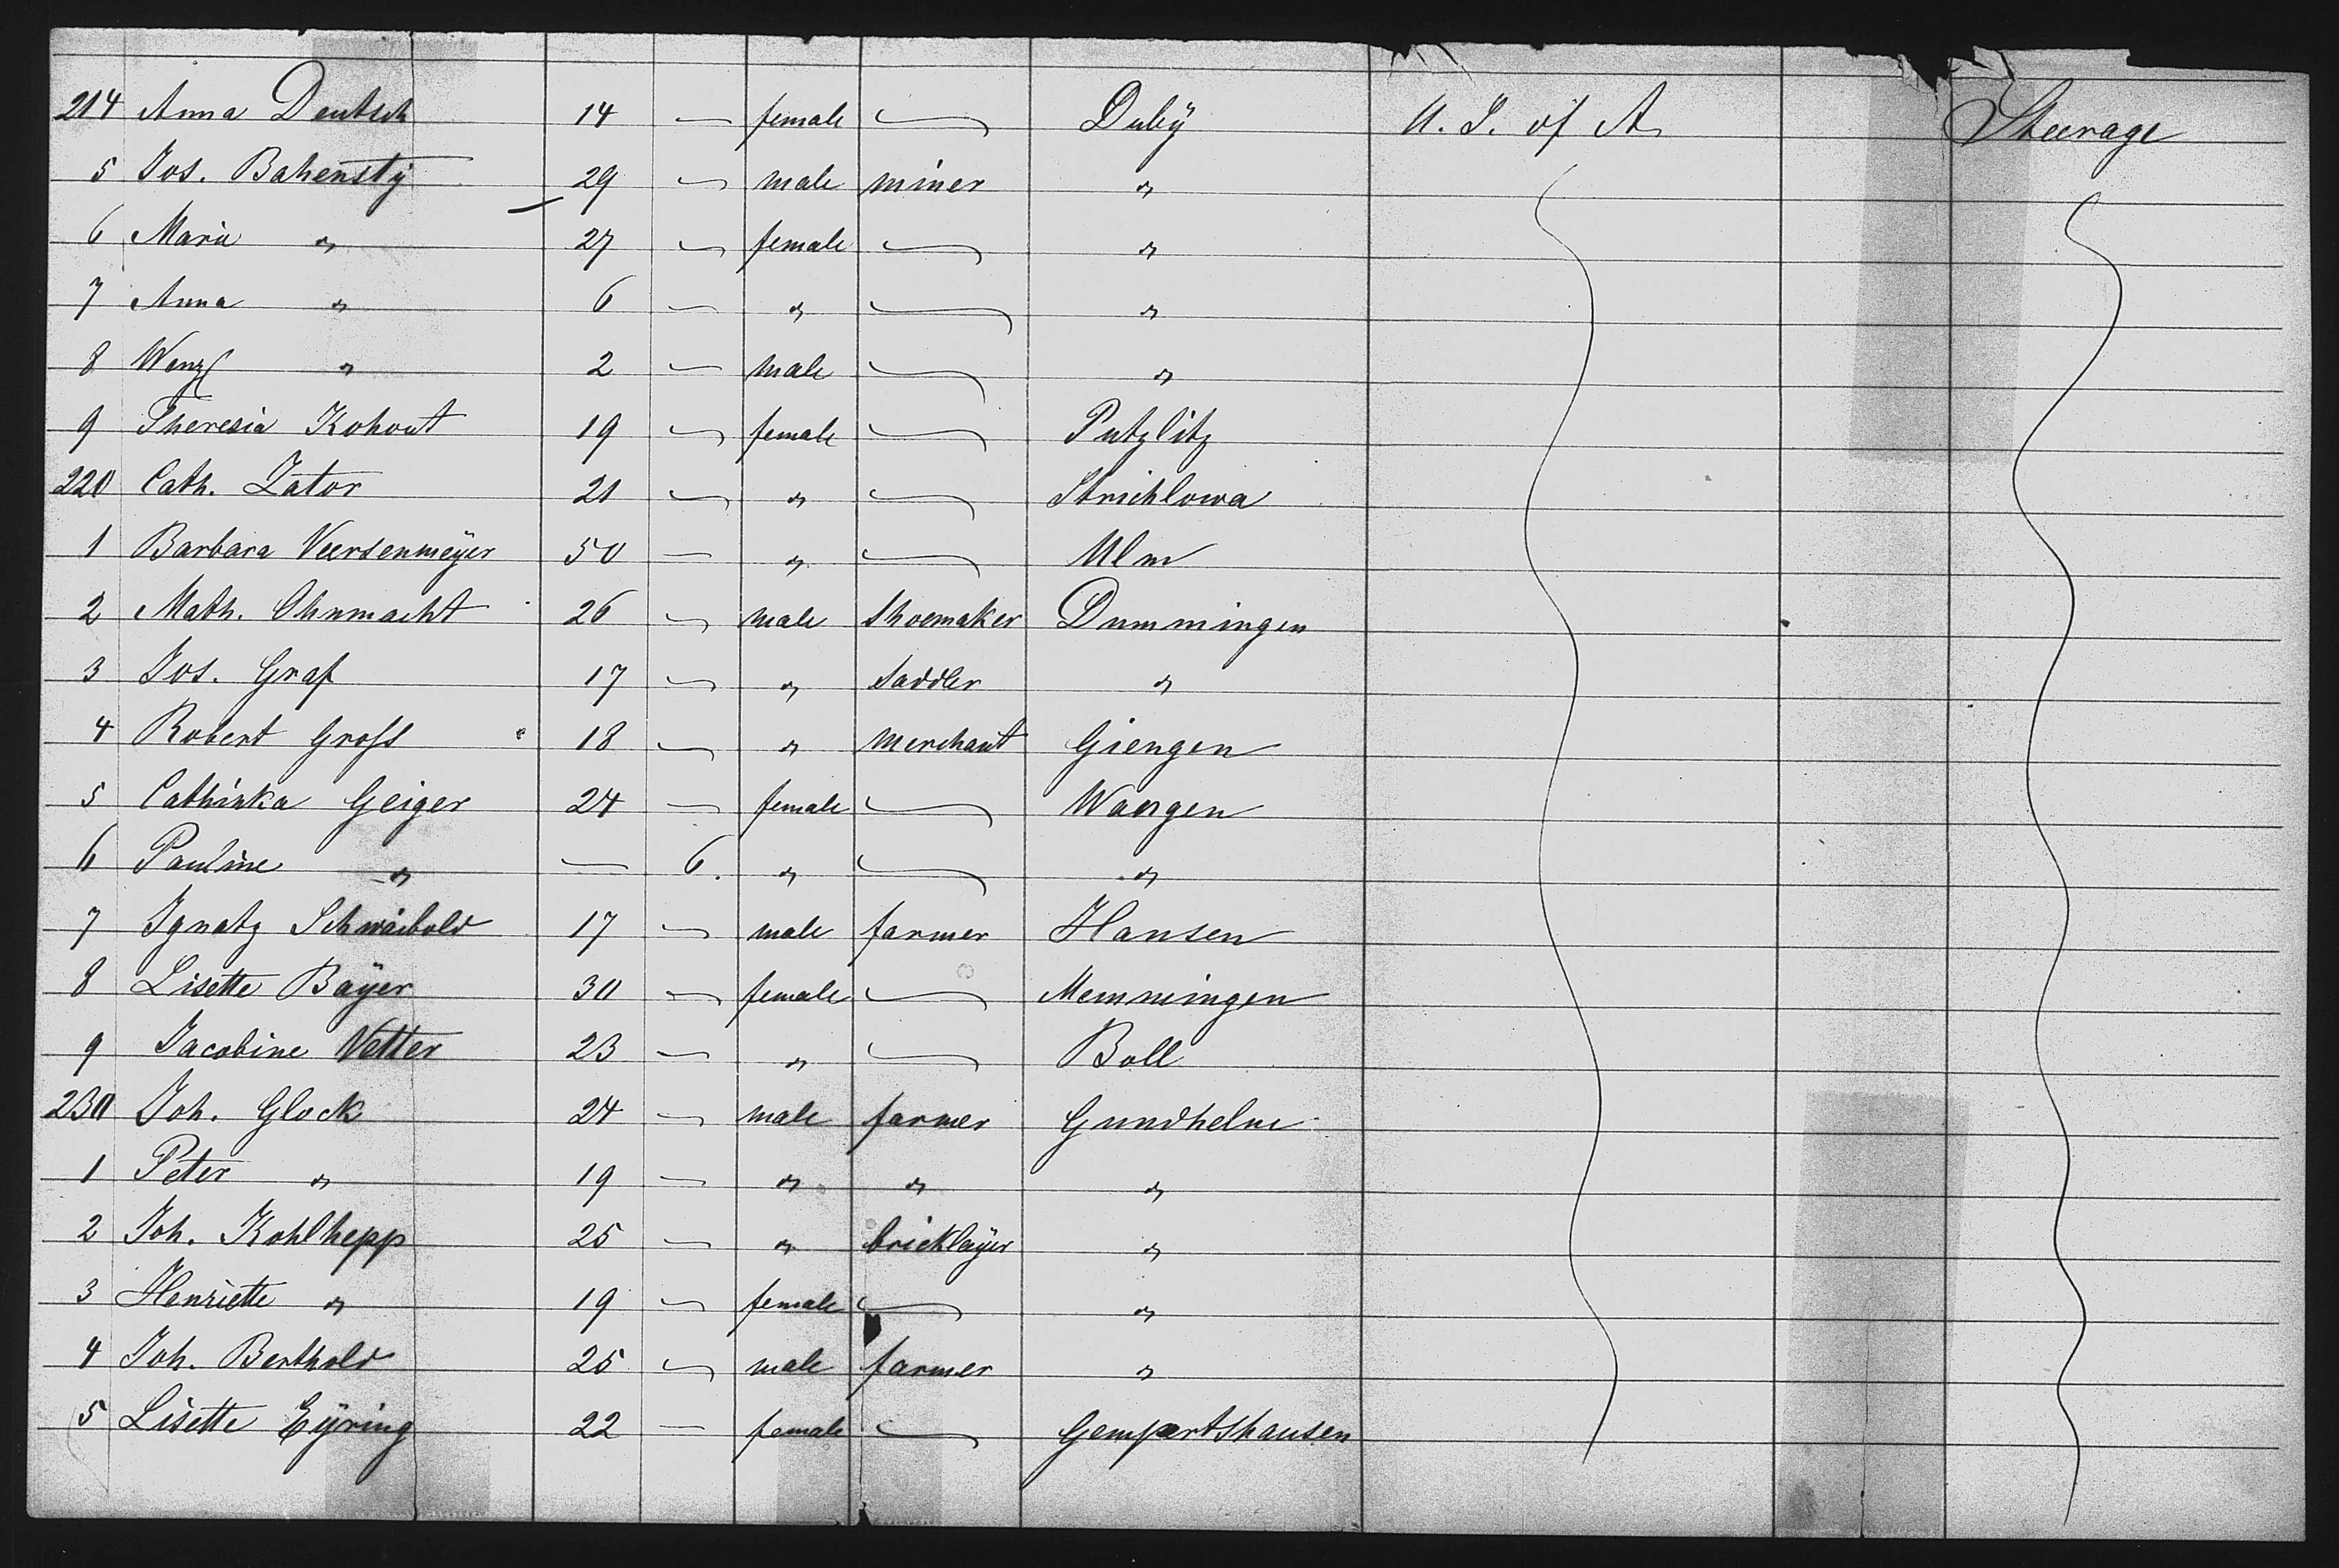 214 Anna Deutsch 14 — female — Duby U. S. of A. Steerage
5 Jos. Bahensty 29 — male miner "
6 Maria " 27 — female — "
7 Anna " 6 — " — "
8 Wenzl " 2 — male — "
9 Theresia Kohout 19 — female — Putzlitz
220 Cath. Zator 21 — " — Strichlowa
1 Barbara Veersenmeÿer 50 — " — Ulm
2 Math. Ohnmacht 26 — male shoemaker Dunningen
3 Jos. Graf 17 — " saddler "
4 Robert Gross 18 — " merchant Giengen
5 Cathinka Geiger 24 — female — Wangen
6 Pauline " — 6. " — "
7 Ignatz Schwaibold 17 — male farmer Hausen
8 Lisette Bayer 30 — female — Memmingen
9 Jacobine Vetter 23 — " — Boll
230 Joh. Glock 24 — male farmer Gundhelm
1 Peter " 19 — " " "
2 Joh. Kohlhepp 25 — " bricklayer "
3 Henriette " 19 — female — "
4 Joh. Berthold 25 — male farmer "
5 Lisette Eÿring 22 — female — Gompertshausen